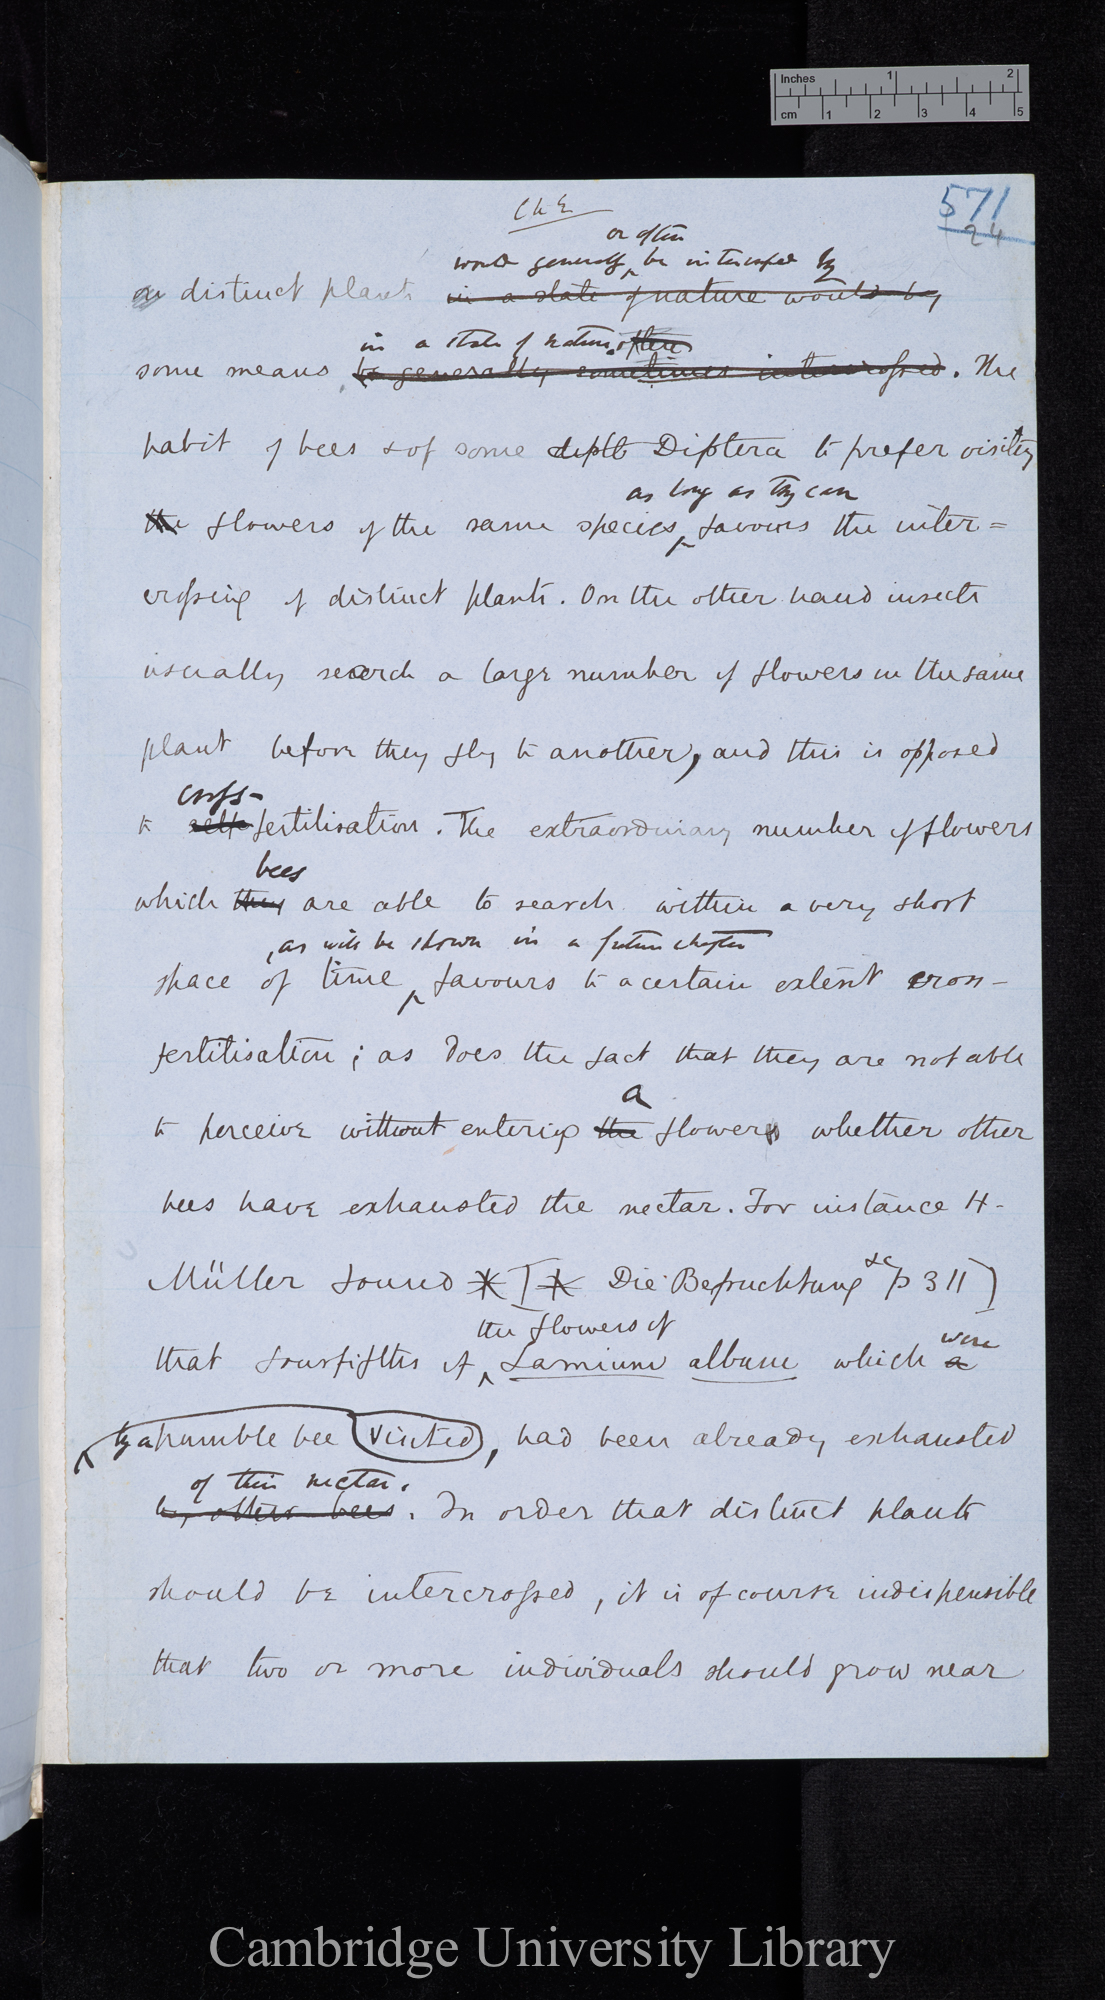 Inches 1 2
cm 1 2 3 4 5
571
24
Ch E
or often
would generally be intercrossed by
on distinct plants in a state of nature would by
in a state of nature often
some means be generally sometimes intercrossed. The
habit of bees & of some dipt Diptera to prefer visiting
as long as they can
the flowers of the same species, favours the inter=
crossing of distinct plants. On the other hand insects
usually search a large number of flowers on the same
plant before they fly to another, and this is opposed
cross-
to self fertilisation. The extraordinary number of flowers
bees
which they are able to search within a very short
, as will be shown in a future chapter
space of time, favours to a certain extent cross-
fertilisation; as does the fact that they are not able
a
to perceive without entering the flowers whether other
bees have exhausted the nectar. For instance H.
Müller found * [* Die Befruchtung &c p 311]
the flowers of
were
that fourfifths of Lamium album which a
by a humble bee visited, had been already exhausted
of their nectar.
by other bees. In order that distinct plants
should be intercrossed, it is of course indispensible
that two or more individuals should grow near
Cambridge University Library